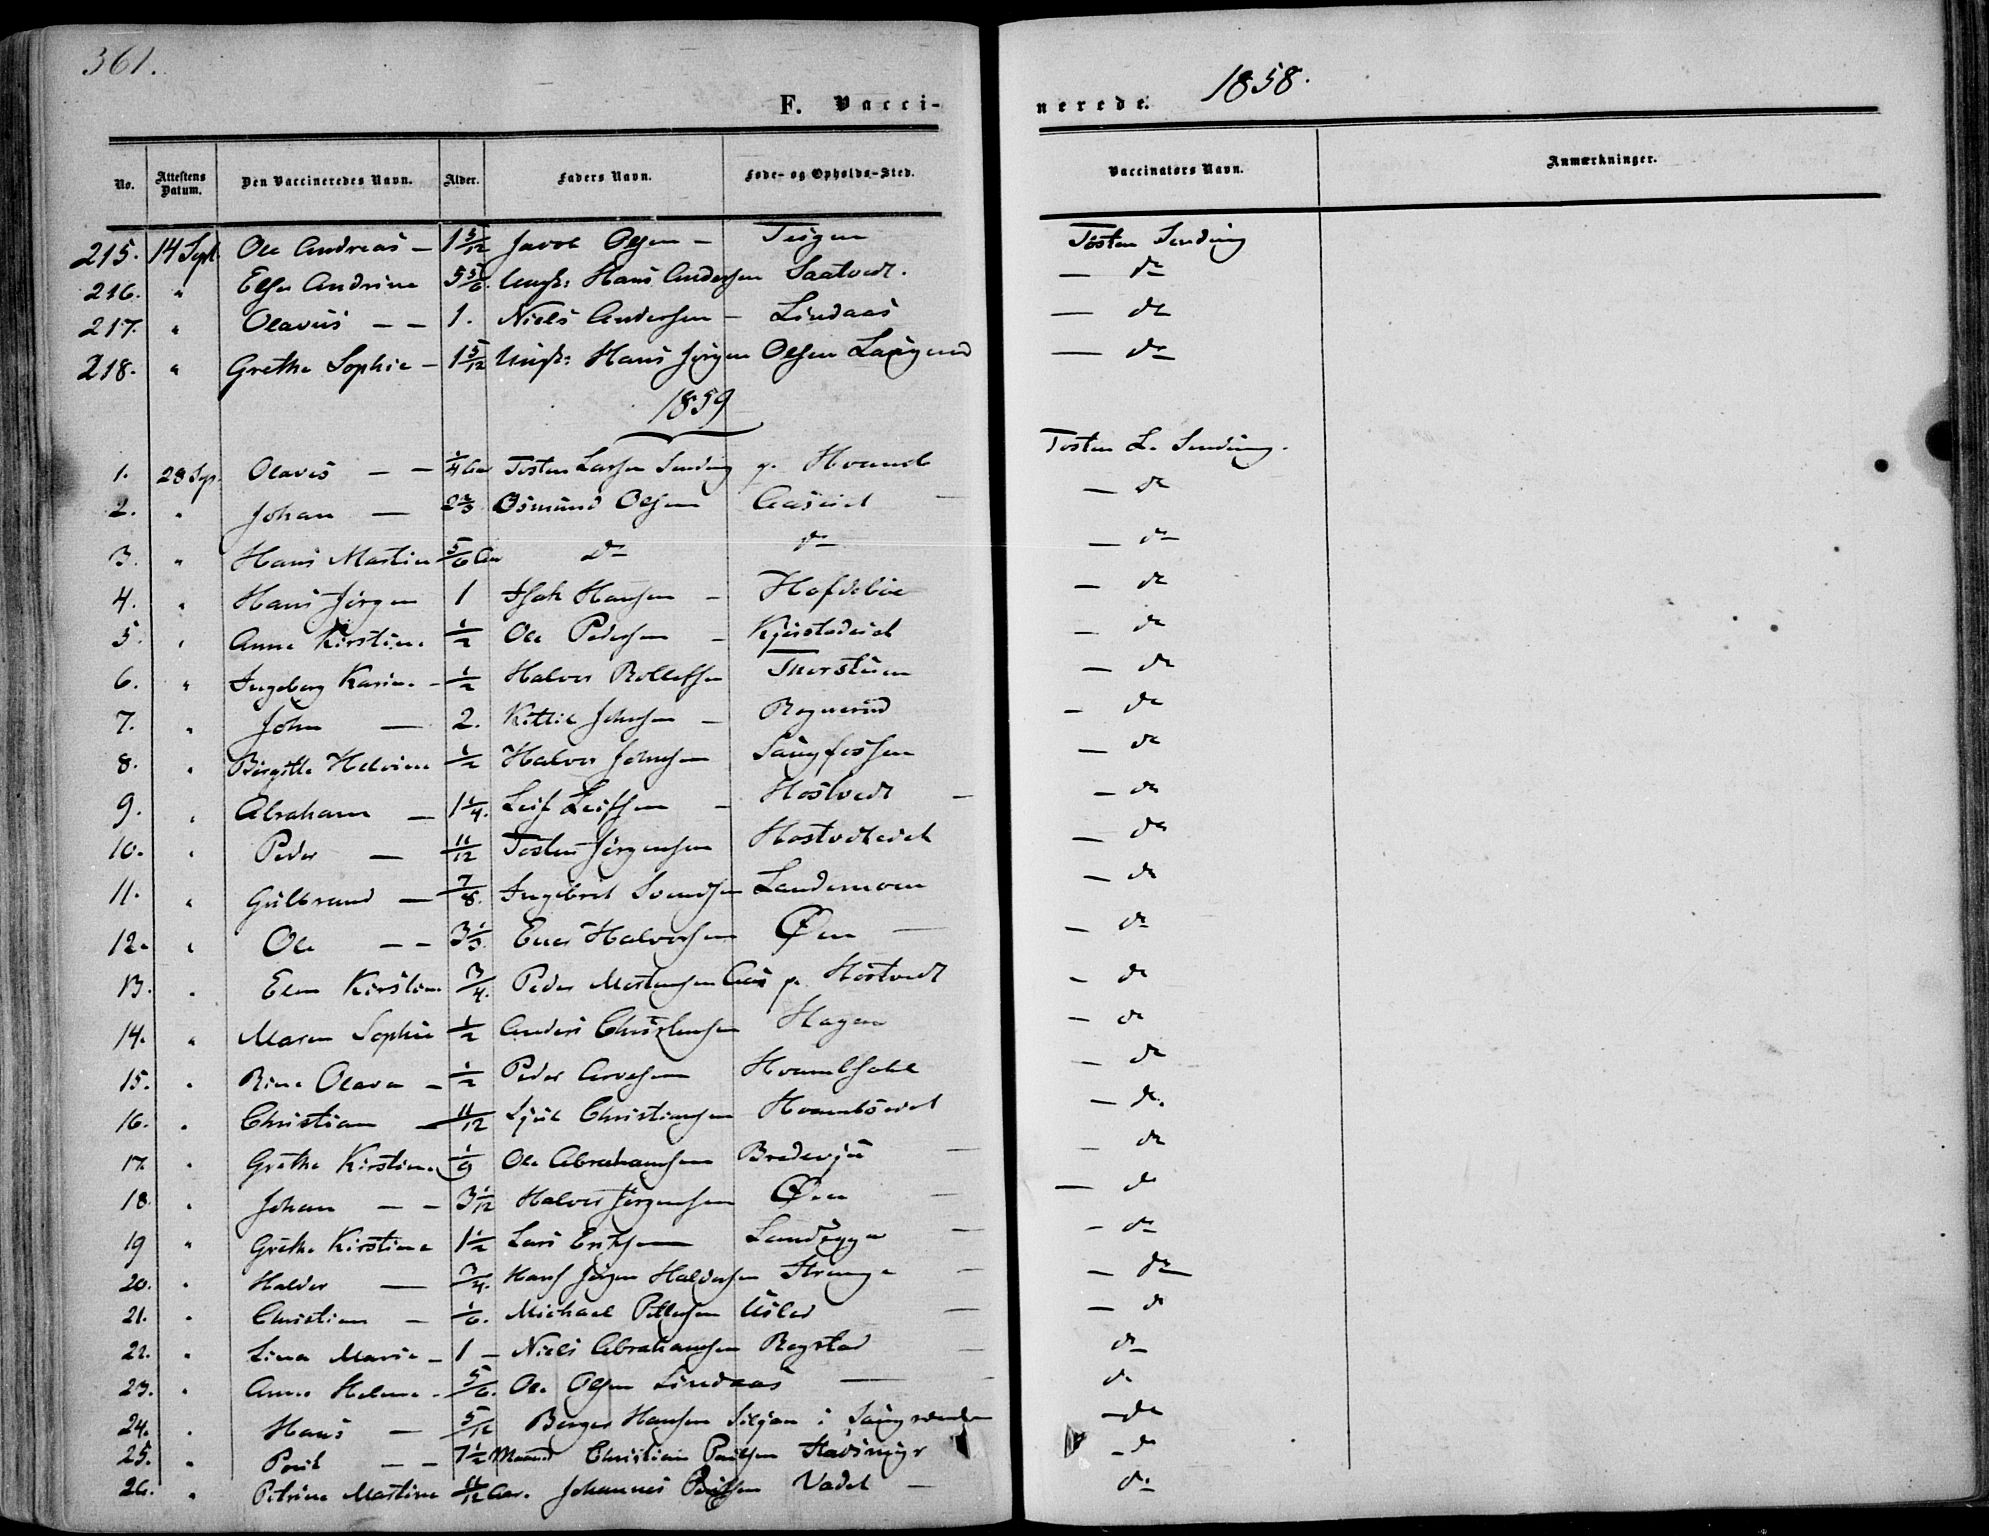 361.
F. Vacci-
nerede.
1858.
No. Attestens Datum. Den Vaccineredes Navn. Alder. Faders Navn. Føde- og Opholds-Sted. Vaccinators Navn. Anmærkninger.
215. 14 Sept. Ole Andreas - 1 5/12 Jacob Olsen - Teigen Tosten Sending
216. " Else Andrine 5 5/6 Ungk: Hans Andersen Saatvedt. - do
217. " Olavus - - 1. Niels Andersen - Lindaas - do
218. " Grethe Sophie - 1 5/12 Ungk: Hans Jørgen Olsen Langerud - do
1859
1. 28 Sep. Olaves - - 1/4 Aar Tosten Larsen Sending p. Hvamb Tosten L. Sending.
2. " Johan - 2 2/3 Osmund Olsen Aaseiet - do
3. " Hans Martin 5/6 Aar do do - do
4. " Hans Jørgen 1 Isak Hansen - - do
5. " Anne Kirstine 1/2 Ole Pedersen - - do
6. " Ingeborg Karine - 1/2 Halvor Rollefsen - do
7. " John - 2. Kittil Johnsen - Rognerud - do
8. " Birgitte Helvine 1/2 Halvor Johnsen Langfossen - do
9. " Abraham - 1 1/4. Leif Leifsen - Hostvedt - - do
10. " Peder - 11/12 Tosten Jørgensen Hostvedteiet - do
11. " Gulbrand - 7/8. Ingebret Svendsen Landemoen - do
12. " Ole - - 3 1/3. Halvorsen Øen - - do
13. " Elen Kirstine 3/4. Peder Mortensen Aas p. Hostvedt - do
14. " Maren Sophie 1/2 Anders Christensen Hagen - do
15. " Rine Olava - 1/2 Peder Arvesen - do
16. " Christian - 11/12 Christiansen Hvambseiet - do.
17. " Grethe Kirstine 1/9 Ole Abrahamsen Bredevju - - do
18. " Johan - - 3 1/12 Halvor Jørgensen Øen - - do
19 " Grethe Kirstine 1 1/2 Lars Eriksen - - do
20. " Haldor - 3/4. Hans Jørgen Haldorsen - - do
21. " Christian - 1/6. Michael Pettersen - - do
22. " Lina Marie - 1 - Niels Abrahamsen Rogstad - do
23. " Anne Helene - 5/6. Ole Olsen Lindaas - do
24. " Hans - 5/12 Børger Hansen Siljan i - do
25. " Poul - - 7 1/2 Maaned Christian Poulsen - do
26. " Petrine Martine 11/12 Aar. Johannes Poulsen Vadet - do